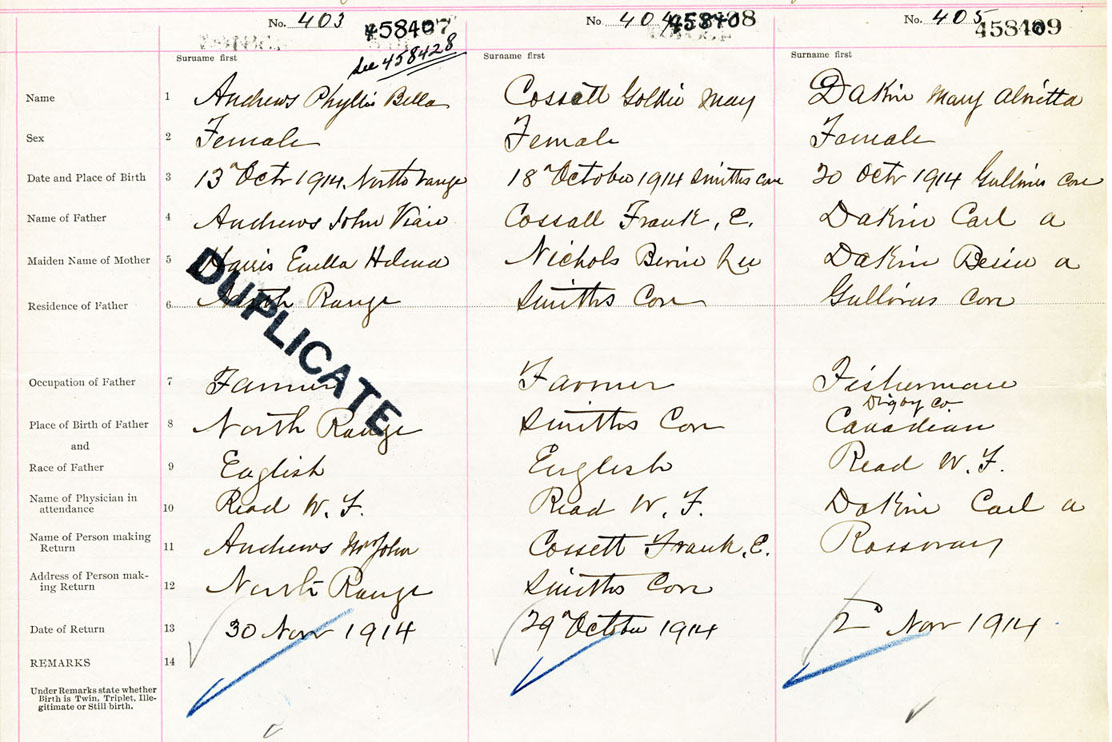 No. 403 458407 No. 404 458408 No. 405 458409
see 458428
Surname first Surname first Surname first
Name 1 Andrews Phyllis Bella Cossett Goldie May Dakin Mary Alvitta
Sex 2 Female Female Female
Date and Place of Birth 3 13 Octr 1914 North range 18 October 1914 Smiths Cove 20 Octr 1914 Gullivers Cove
Name of Father 4 Andrews John Cossall Frank, E. Dakin Carl a
Maiden Name of Mother 5 Harris Euella Helena Nichols Dakin Bessie a
Residence of Father 6 North Range Smiths Cove Gullivers Cove
DUPLICATE
Occupation of Father 7 Farmer Farmer Fisherman
Digby Co.
Place of Birth of Father 8 North Range Smiths Cove Canadian
and
Race of Father 9 English English Read W. F.
Name of Physician in
attendance 10 Read W. F. Read W. F. Dakin Carl a
Name of Person making
Return 11 Andrews Mrs John Cossett Frank, E. Rossway
Address of Person mak-
ing Return 12 North Range Smiths Cove
Date of Return 13 30 Nov 1914 29 October 1914 2 Nov 1914
REMARKS 14
Under Remarks state whether
Birth is Twin, Triplet, Ille-
gitimate or Still birth.